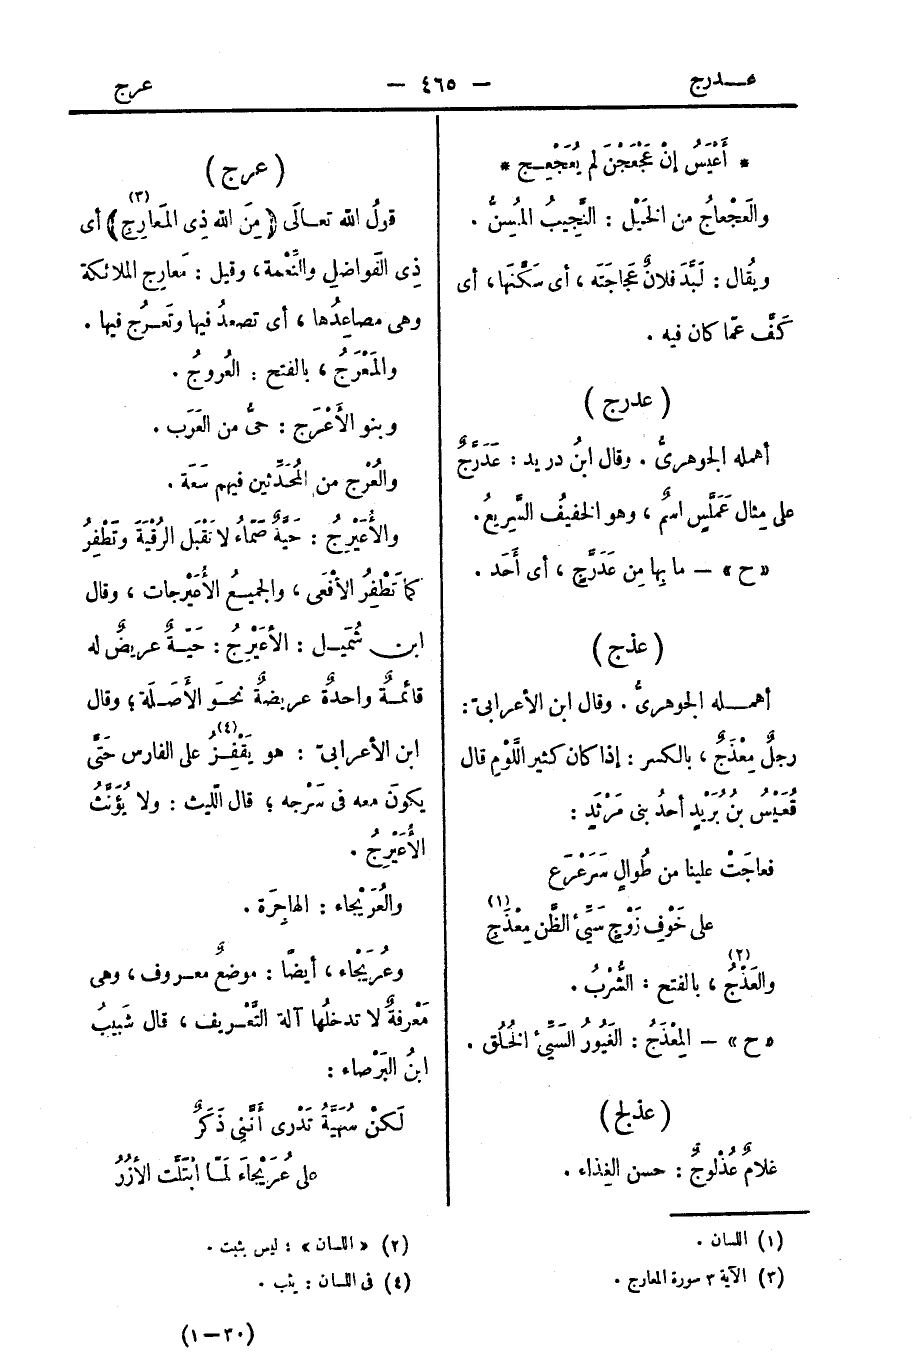 عــدرج
— ٤٦٥ —
عرج
* أَعْيَسُ إِنْ عَجْعَجْنَ لم يُعَجْعِـج *
والعَجْعاجُ من الخَيْل : النَّجِيبُ المُسِنُّ .
ويُقال : لَبَّدَ فلانٌ عَجاجَتَه ، أى سَكَّنَها ، أى
كَفَّ عمّا كان فيه .
( عدرج )
أهمله الجوهرىُّ . وقال ابنُ دريد : عَدَرَّجٌ
على مِثال عَمَلَّسٍ اسمٌ ، وهو الخفيفُ السَّرِيعُ .
« ح » — ما بِها مِن عَدَرَّجٍ ، أى أَحَد .
( عذج )
أهمــله الجوهرىُّ . وقال ابن الأعرابىّ :
رجلٌ مِعْذَجٌ ، بالكسر : إذا كان كثير اللَّوْمِ قال
قُعَيْسُ بنُ بُرَيْدٍ أحدُ بنى مَرْثَدٍ :
فعاجَتْ علينا من طُوالٍ سَرَعْرَعٍ
على خَوْفِ زَوْجٍ سَيِّئِ الظَّن مِعْذَجِ (١)
والعَذْجُ (٢) ، بالفتح : الشُّرْبُ .
« ح » — المِعْذَجُ : الغَيُورُ السَيِّئُ الخُلُق .
( عذلج )
غلامٌ عُذْلوجٌ : حسن الغِذاء .
( عرج )
قولُ الله تعـالَى ﴿ مِنَ الله ذِى المَعارِجِ ﴾ (٣) أى
ذِى الفَواضِل والنِّعْمة ، وقيل : مَعارِج الملائكة
وهى مصاعِدُها ، أى تصعدُ فيها وتَعـرُج فيها .
والمَعْرَجُ ، بالفتح : العُروجُ .
وبنو الأَعْرَج : حىٌّ من العَرَب .
والعُرْج من المُحَدِّثين فيهم سَعَة .
والأُعَيْرِجُ : حَيَّةٌ صَمّاءُ لا تَقْبَل الرُقْيَةَ وتَطْفِرُ
كما تَطْفِرُ الأفْعَى ، والجميـعُ الأُعَيْرجات ، وقال
ابن شُمَيـل : الأُعَيْرِجُ : حَيّةٌ عريضٌ له
قائمـةٌ واحدةٌ عريضةٌ نحـو الأَصَلَة ؛ وقال
ابن الأعرابىّ : هو يَقْفِـزُ (٤) على الفارس حَتَّى
يكونَ معه فى سَرْجه ؛ قال اللّيث : ولا يُؤَنَّثُ
الأُعَيْرِجُ .
والعُرَيْجاء : الهاجِرَة .
وعُرَيْجاء ، أيضًا : موضعٌ معـروف ، وهى
مَعْرفةٌ لا تدخلُها آلة التَّعْـريف ، قال شَبِيبُ
ابنُ البَرْصاء :
لَكنْ سُهَيَّةُ تَدْرى أَنَّنِى ذَكَرٌ
على عُرَيْجاءَ لَمّا ابْتَلَّت الأُزُرُ
(١) اللسان .
(٢) « اللسان » : ليس بثبت .
(٣) الآية ٣ سورة المعارج .
(٤) فى اللسان : يثب .
(٣٠ — ١)